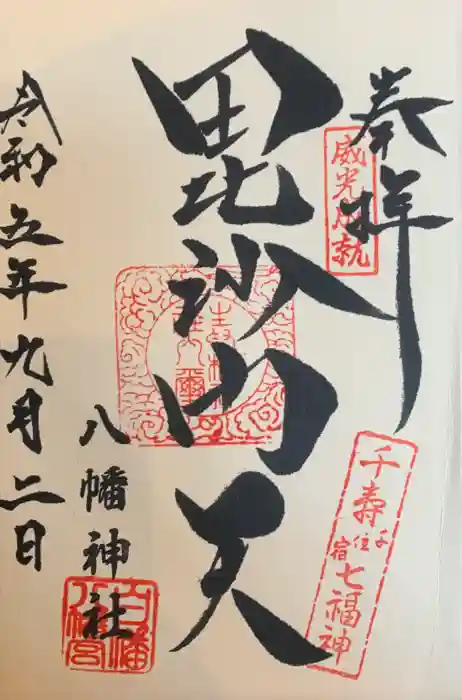 奉拝
威光成就
千寿
千住宿
七福神
毘沙門天
八幡神社
白幡八幡宮
令和五年九月二日